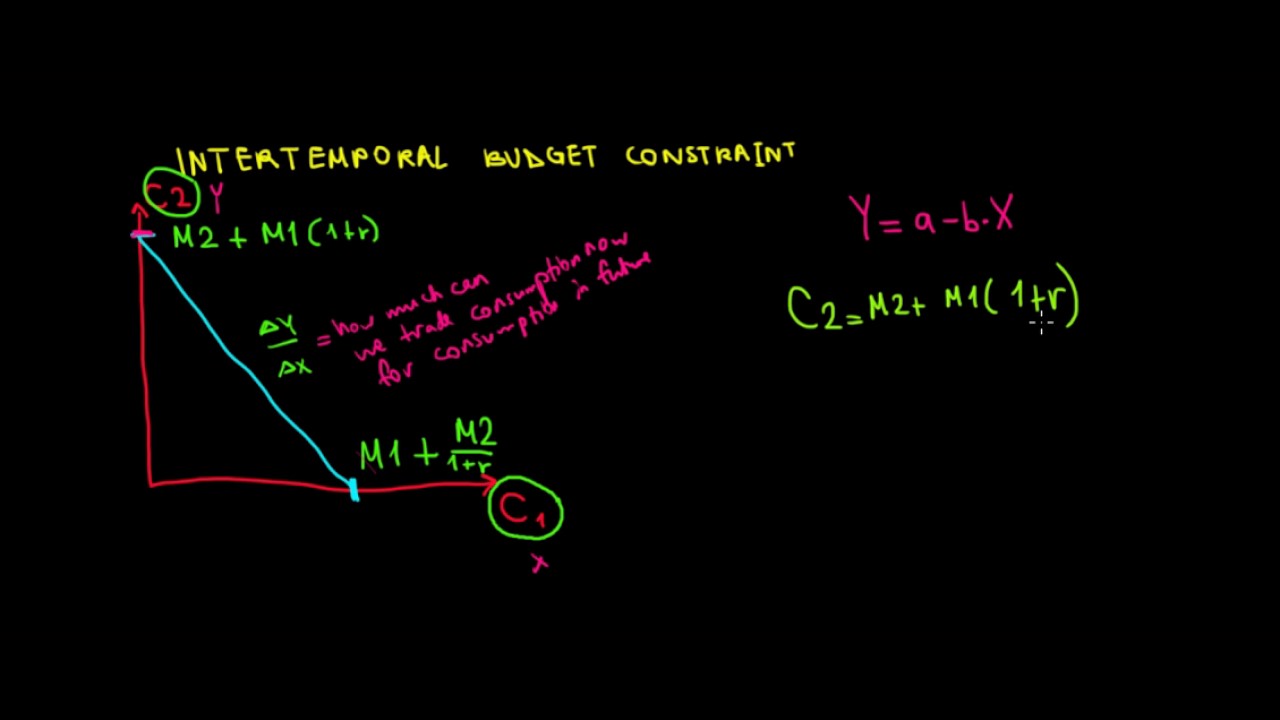 INTERTEMPORAL BUDGET CONSTRAINT
C2 Y
M2 + M1(1+r)
ΔY/ΔX = how much can
we trade consumption now
for consumption in future
M1 + M2/1+r
C1
X
Y = a-b·X
C2 = M2+ M1( 1+r)